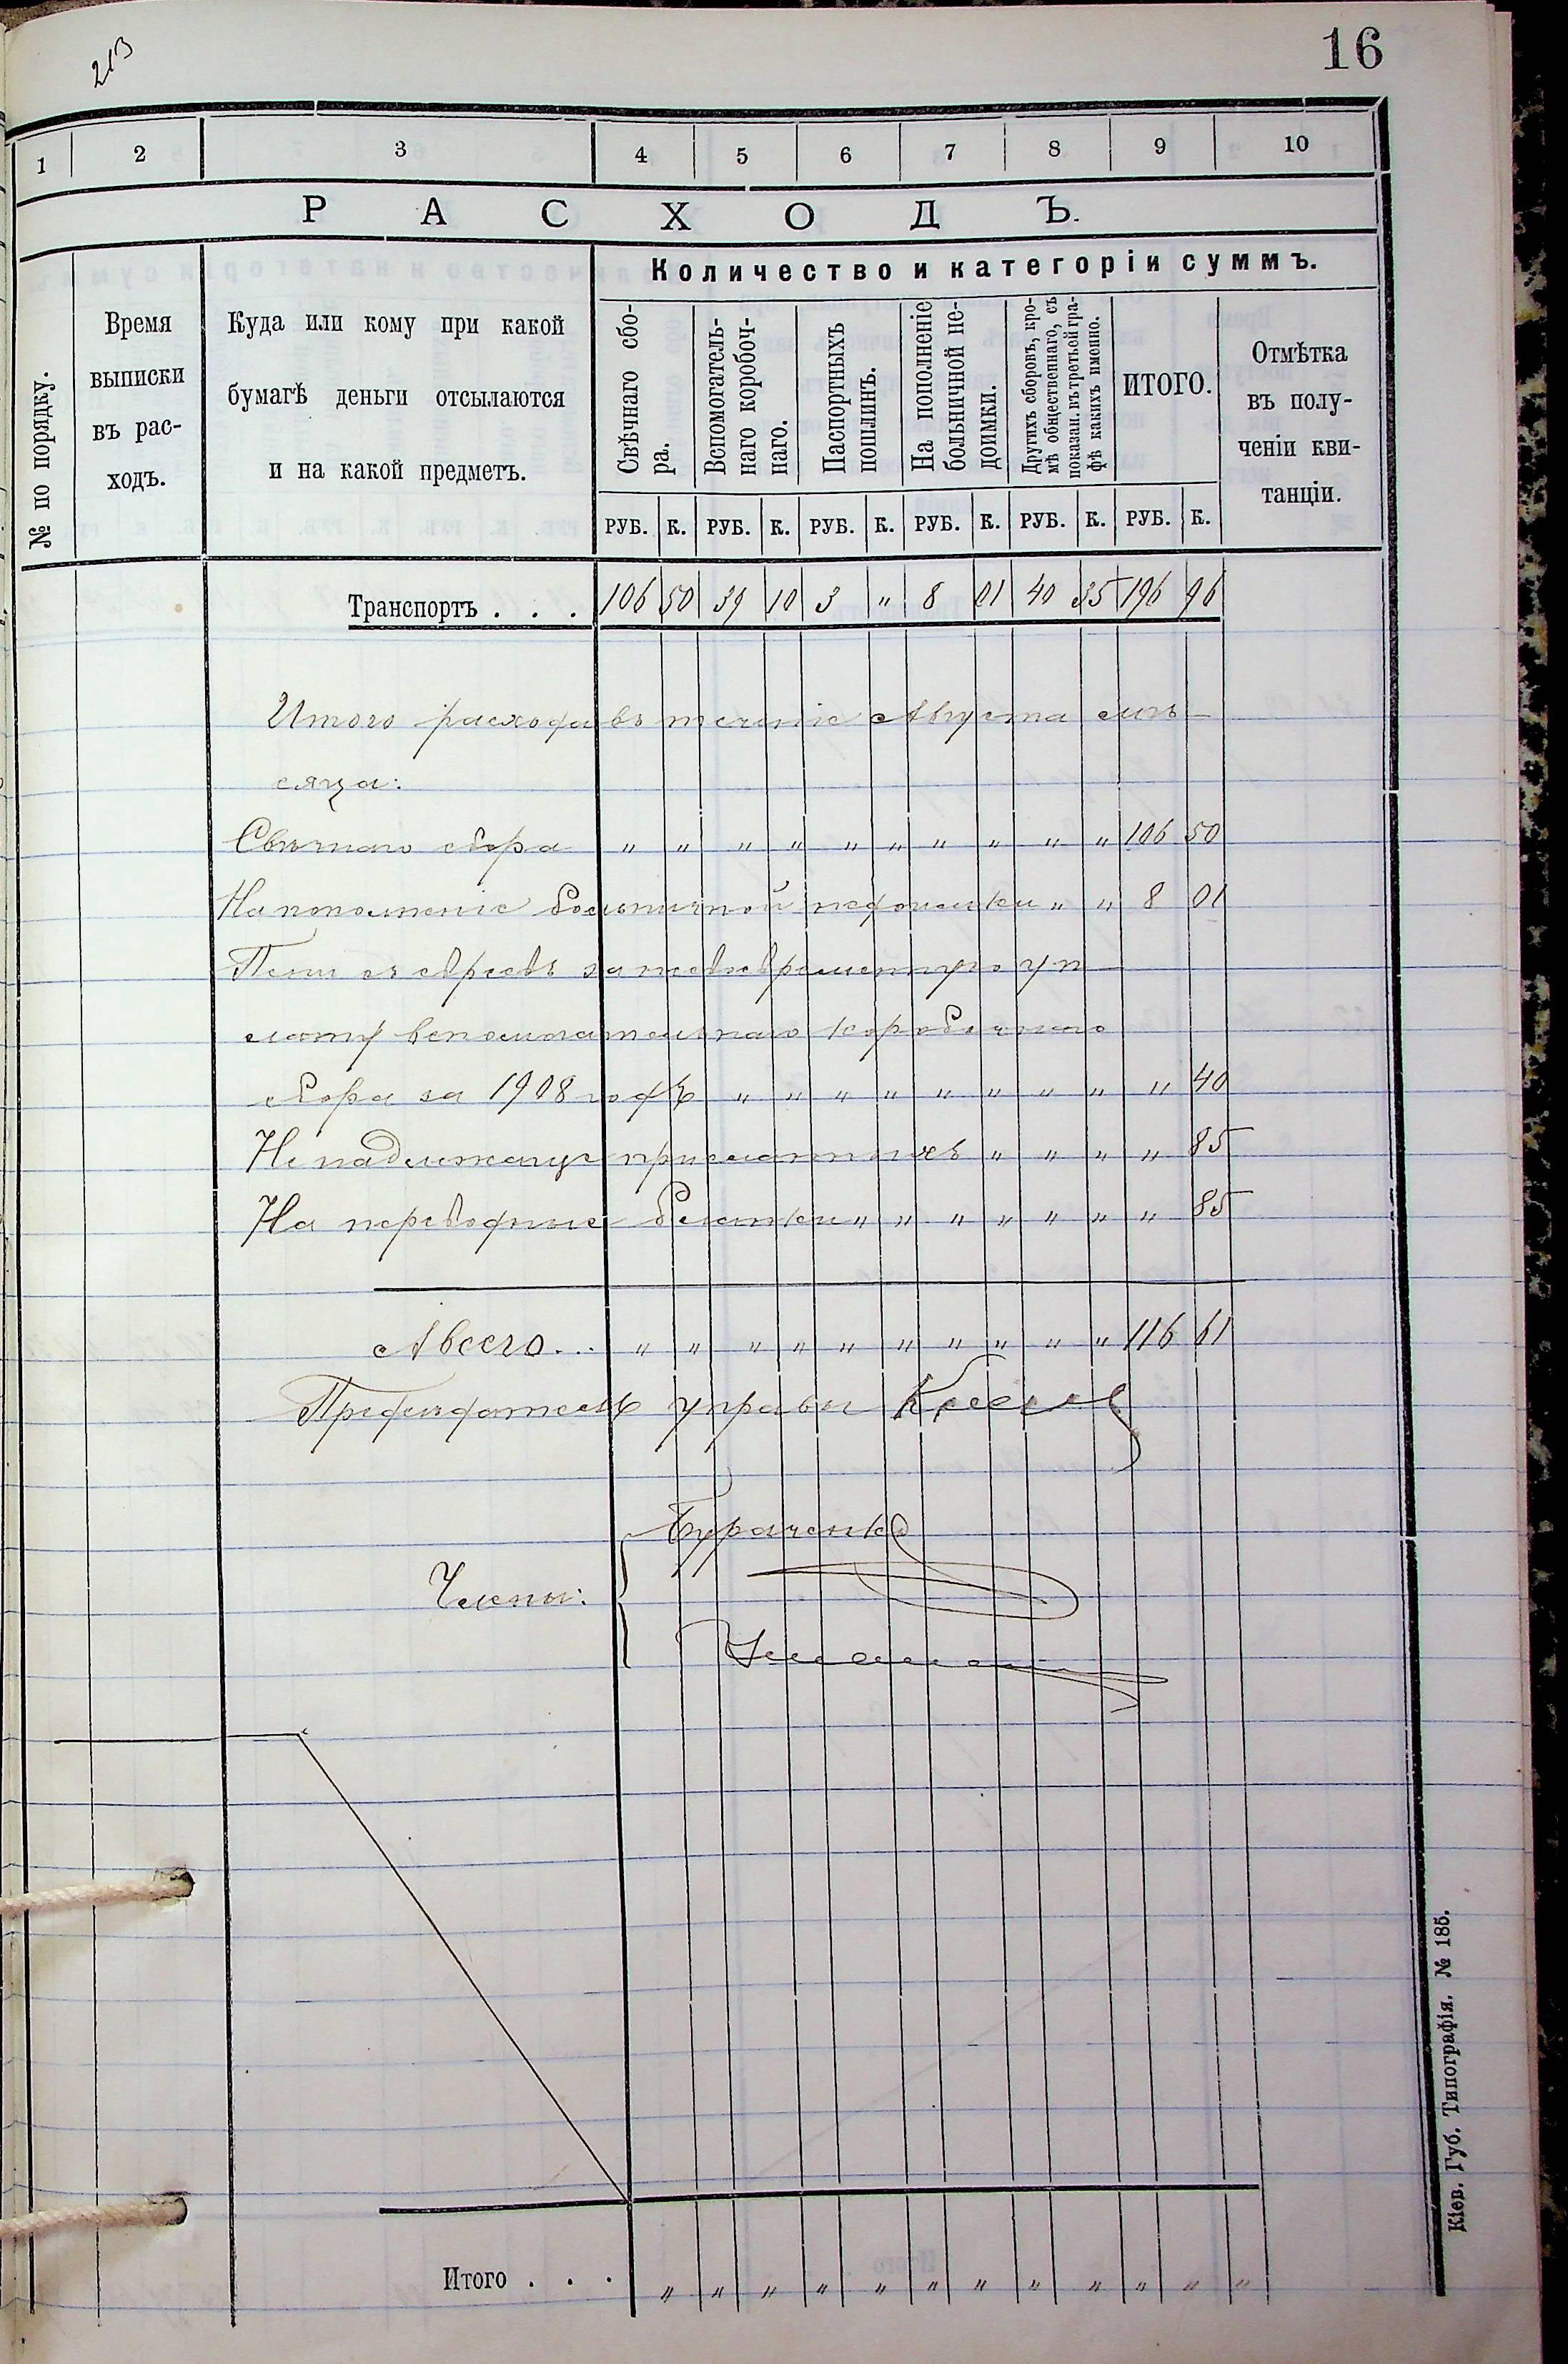 213
16
1 2 3 4 5 6 7 8 9 10
РАСХОДЪ.
№ по порядку.
Время выписки въ рас-ходъ.
Куда или кому при какой
бумагѣ деньги отсылаются
и на какой предметъ.
Количество и категоріи суммъ.
Свѣчнаго сбо-ра.
Вспомогатель-наго коробоч-наго.
Паспортныхъ пошлинъ.
На пополненіе больничной не-доимки.
Другихъ сборовъ, кро-мѣ общественнаго, съ показан. въ третьей гра-фѣ какихъ именно.
ИТОГО.
Отмѣтка въ полу-ченіи кви-танціи.
РУБ. К. РУБ. К. РУБ. К. РУБ. К. РУБ. К. РУБ. К.
Транспортъ . . . 106 50 39 10 3 " 8 01 40 35 196 96
Итого расхода въ теченіе Августа мѣ-
сяца:
Свѣчнаго сбора " " " " " " " " " " 106 50
На пополненіе больничной недоимки " " 8 01
Пени съ евреевъ за несвоевременную уп-
лату вспомогательнаго коробочнаго
сбора за 1908 годъ " " " " " " " " " 40
Ненадлежаще присланныхъ " " " " 85
На переводные бланки " " " " " " " 85
А всего... " " " " " " " " " " 116 61
Предсѣдатель управы
Члены: Бураченко
Итого . . . " " " " " " " " " " " "
Кіев. Губ. Типографія. № 185.